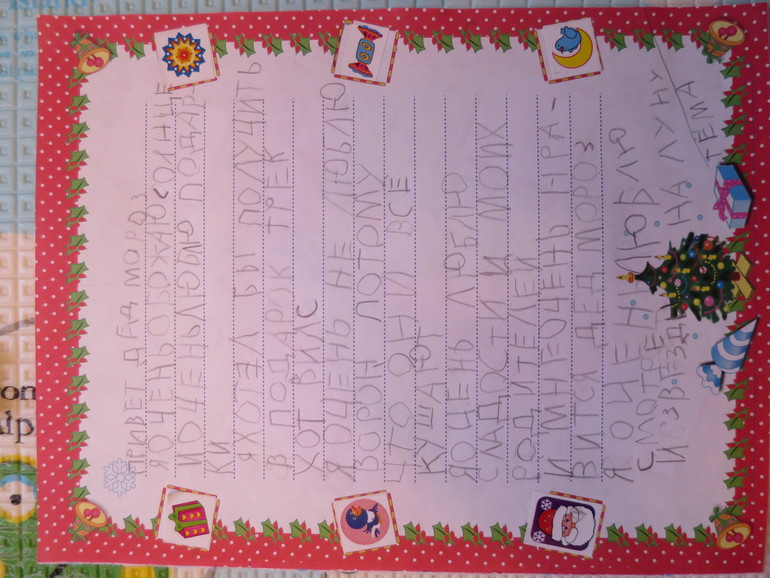 ПРИВЕТ ДЕД МОРОЗ
Я ОЧЕНЬ ОБОЖАЮ СОЛНЦЕ
И ОЧЕНЬ ЛЮБЛЮ ПОДАР
КИ
Я ХОТЕЛ БЫ ПОЛУЧИТЬ
В ПОДАРОК ТРЕК
ХОТ ВИЛС
Я ОЧЕНЬ НЕ ЛЮБЛЮ
ВОРОН ПОТОМУ
ЦТО ОНИ ВСЕ
КУШАЮТ
Я ОЧЕНЬ ЛЮБЛЮ
СЛАДОСТИ И МОИХ
РОДИТЕЛЕЙ
И МНЕ ОЧЕНЬ НРА-
ВИТСЯ ДЕД МОРОЗ
Я ЛЮБЛЮ
СМОТРЕ НА ЛУНУ
И ЗВЕЗД
ТЕМА